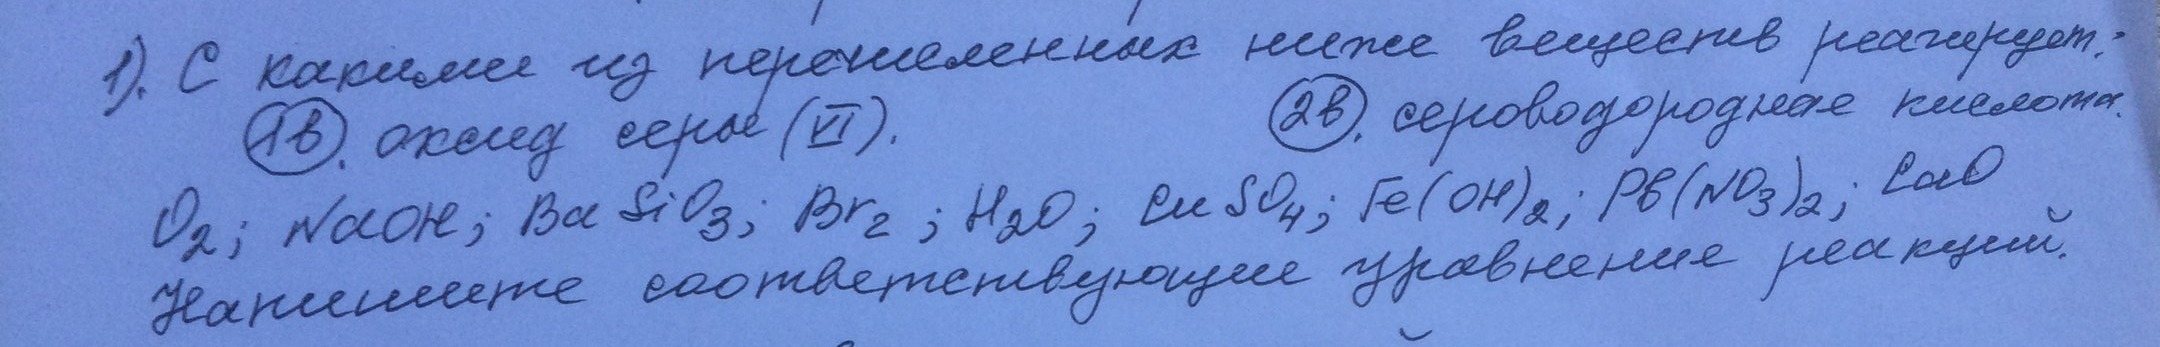 1). С какими из перечисленных ниже веществ реагирует:
1в. оксид серы (VI). 2в. сероводородная кислота.
O₂; NaOH; BaSiO₃; Br₂; H₂O; CuSO₄; Fe(OH)₂; Pb(NO₃)₂; CaO
Напишите соответствующие уравнение реакций.